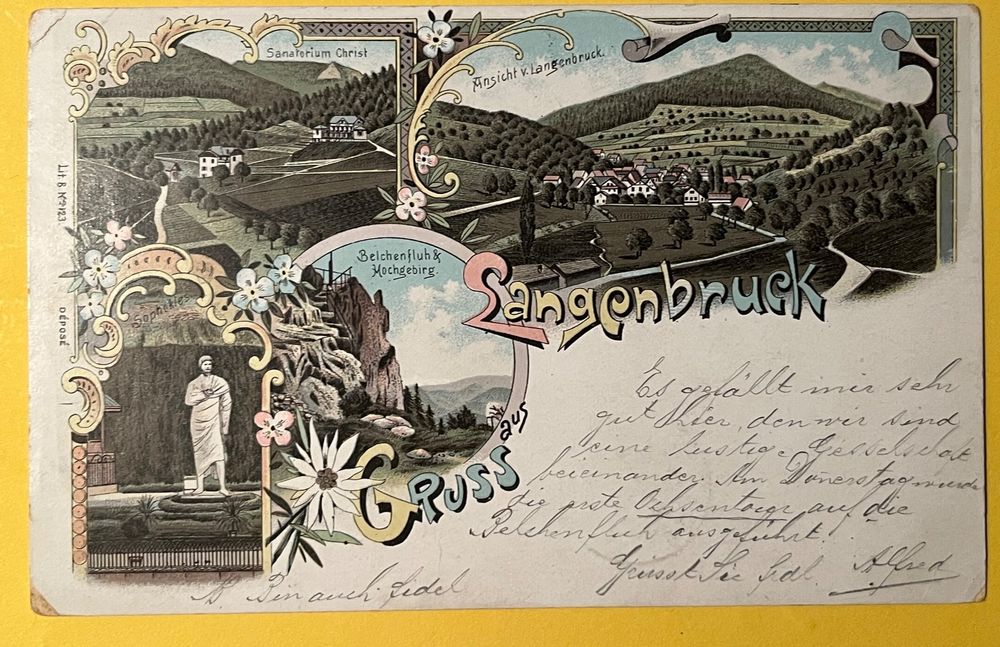 Sanatorium Christ
Ansicht v. Langenbruck.
Lit B. No 2123
DÉPOSÉ
Sophokles
Belchenfluh &
Hochgebirg.
Gruss aus Langenbruck
Es gefällt mir sehr
gut hier, den wir sind
eine lustige Gesselschaft
beieinander. Am Donerstag wurde
die erste auf die
Belchenfluh ausgeführt.
Grüsst Sie Alfred
Bin auch fidel